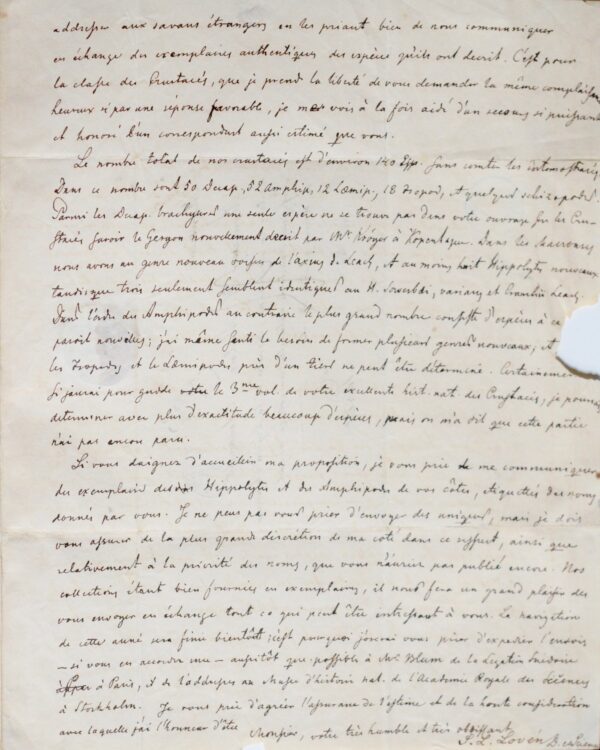 addresser aux savans étrangers en les priant bien de nous communiquer
en échange des exemplaires authentiques des espèces qu'ils ont decrit. C'est pour
la classe des Crustacés, que je prend la liberté de vous demander la même complaisance
heureux si par une réponse favorable, je me vois à la fois aidé d'un secours si puissant
et honoré d'un correspondant aussi estimé que vous.
Le nombre total de nos crustacés est d'environ 140 Esp. sans compter les entomostracés
Dans ce nombre sont 50 Decap, 52 Amphip, 12 Læmip, 18 Isopod, et quelques schizopodes.
Parmi les Decap. brachyures une seule espèce ne se trouve pas dans votre ouvrage sur les Cru-
stacés savoir le Geryon nouvellement decrit par Mr Kröyer à Kopenhague. Dans les Macroures
nous avons un genre nouveau voisin de l'axius d. Leach, et au moins huit Hippolytes nouveaux
tandisque trois seulement semblent identiques au H. Sowerbæi, varians et Cranchii Leach.
Dans l'ordre des Amphipodes au contraire le plus grand nombre consiste d'espèces à ce
paroit nouvelles; j'ai même senti le besoin de former plusieurs genres nouveaux, et
les Isopodes et le Læmipodes près d'un tiers ne peut être determiné. Certainement
si j'aurai pour guide votre le 3me vol. de votre excellente hist. nat. des Crustacés, je pourrai
determiner avec plus d'exactitude beaucoup d'espèces, mais on m'a dit que cette partie
n'ai pas encore paru.
Si vous daignez d'accueillir ma proposition, je vous prie de me communiquer
des exemplaires des Hippolytes et des Amphipodes de vos côtes, étiquettés des noms,
donnés par vous. Je ne peus pas vous prier d'envoyer des uniques, mais je dois
vous assurer de la plus grande discrétion de ma coté dans ce respect, ainsi que
relativement à la priorité des noms, que vous n'auriez pas publié encore. Nos
collections étant bien fournies en exemplaires, il nous fera un grand plaisir des
vous envoyer en échange tout ce qui peut être intéressant à vous. La navigation
de cette année sera finie bientôt; c'est pourquoi j'oserai vous prier d'expedier l'envois
— si vous en accordez une — aussitôt que possible à Mr Blum de la Legation Suedoise
à Paris, et de l'addresser au Musee d'histoire nat. de l'Academie Royale des Sciences
à Stockholm. Je vous prie d'agréer l'assurance de l'estime et de la haute consideration
avec laquelle j'ai l'honneur d'être Monsieur, votre très humble et très obéissant
S. L. Lovén